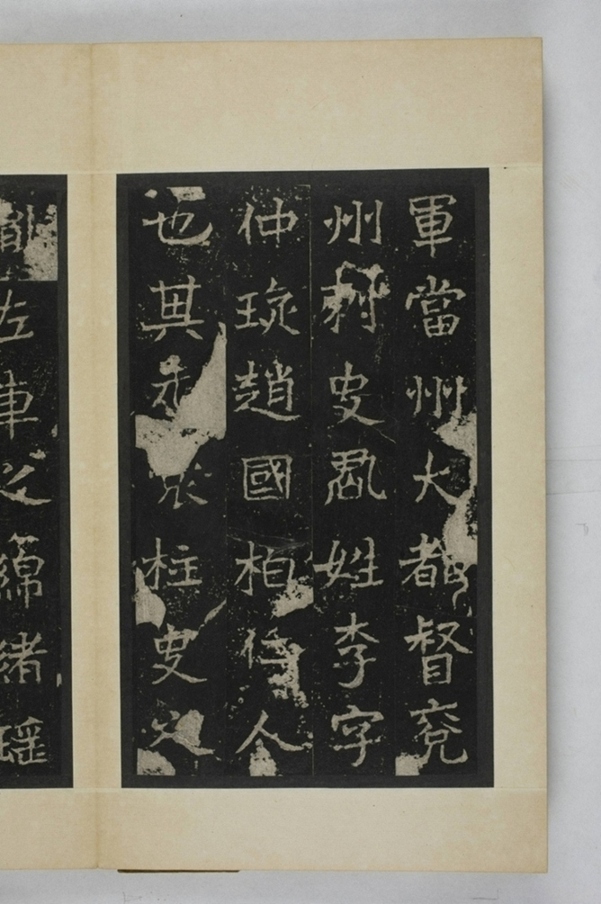 軍當州大都督兗
州刺史君姓李字
仲琁趙國柏人
也其柱史
左車之綿緒瑤